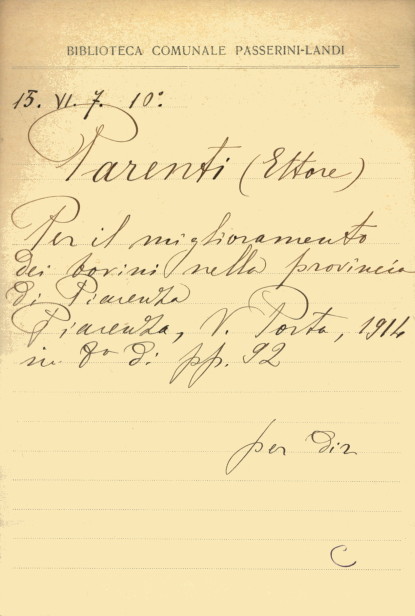 BIBLIOTECA COMUNALE PASSERINI-LANDI
15. VI. 7. 10º
Parenti (Ettore)
Per il miglioramento
dei bovini nella provincia
di Piacenza
Piacenza, V. Porta, 1914
in 8º di pp. 92
per dir
C